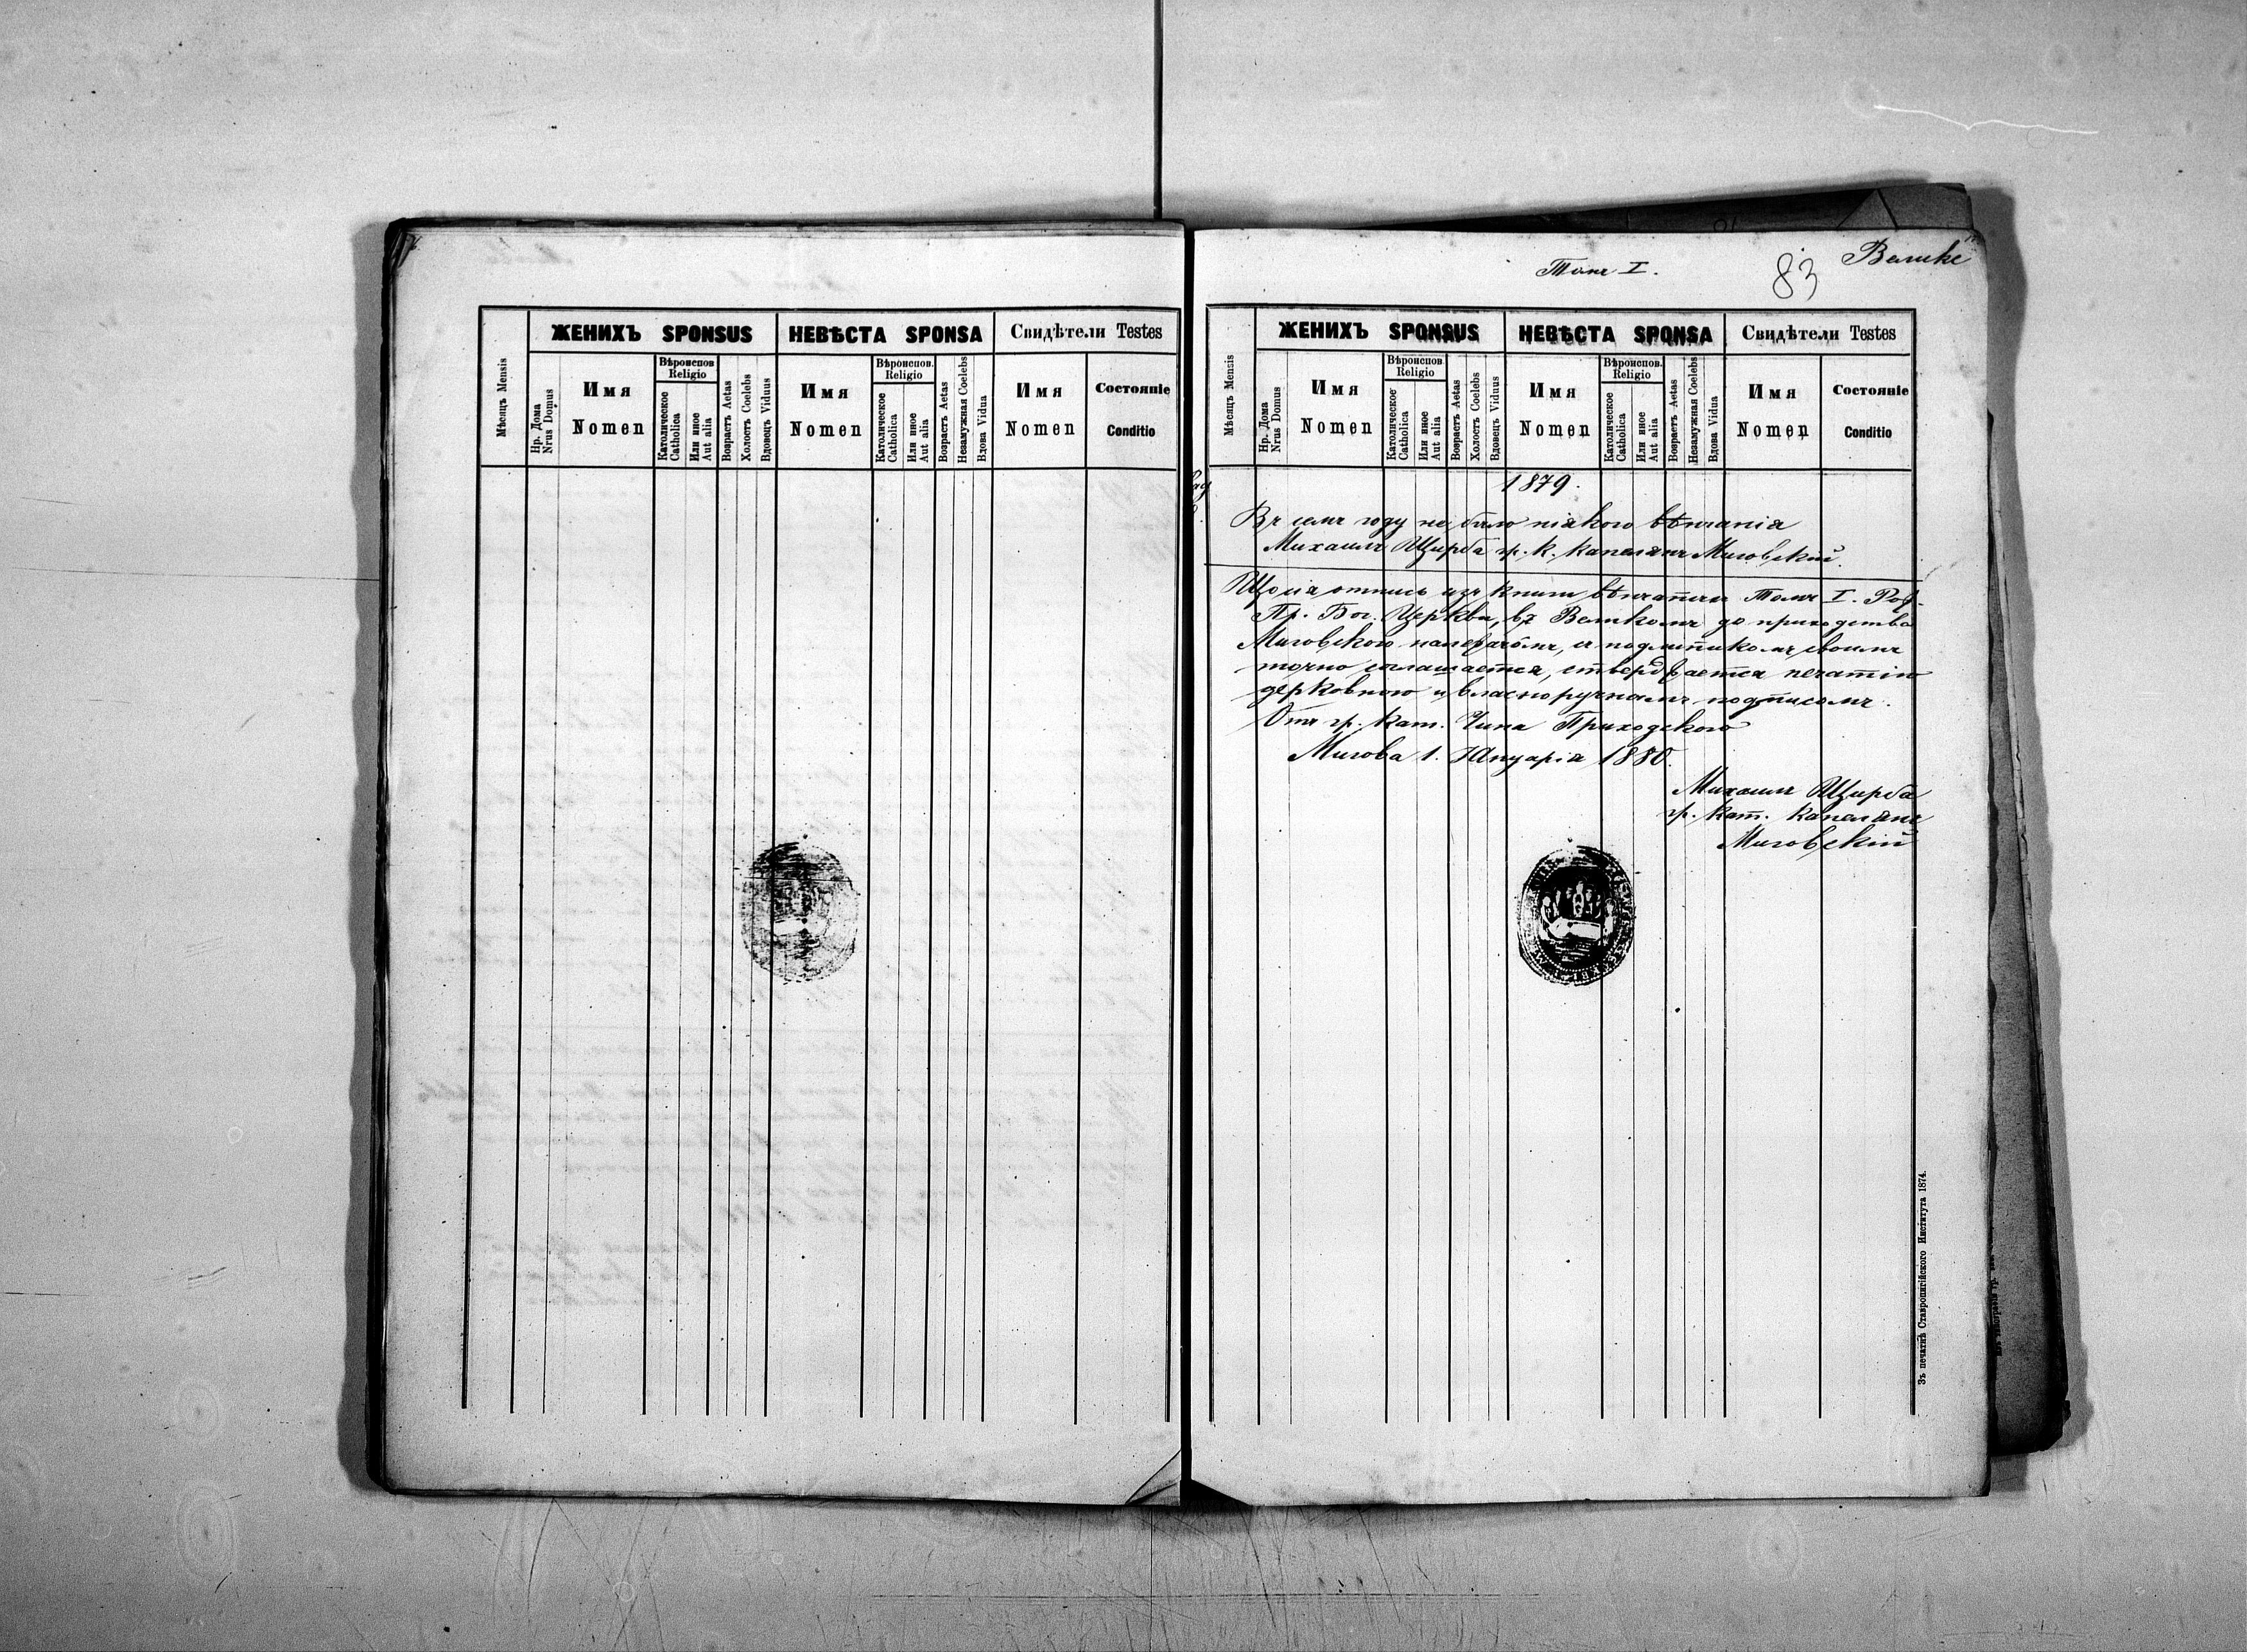 Томъ I.
83
Велике
ЖЕНИХЪ SPONSUS
НЕВѢСТА SPONSA
Свидѣтели Testes
Мѣсяцъ Mensis
Нр. Дома
Nrus Domus
Имя
Nomen
Вѣроиспов.
Religio
Католическое
Catholica
Или иное
Aut alia
Возрастъ Aetas
Холостъ Coelebs
Вдовецъ Viduus
Имя
Nomen
Вѣроиспов.
Religio
Католическое
Catholica
Или иное
Aut alia
Возрастъ Aetas
Незамужная Coelebs
Вдова Vidua
Имя
Nomen
Состоянiе
Conditio
ЖЕНИХЪ SPONSUS
НЕВѢСТА SPONSA
Свидѣтели Testes
Мѣсяцъ Mensis
Нр. Дома
Nrus Domus
Имя
Nomen
Вѣроиспов.
Religio
Католическое
Catholica
Или иное
Aut alia
Возрастъ Aetas
Холостъ Coelebs
Вдовецъ Viduus
Имя
Nomen
Вѣроиспов.
Religio
Католическое
Catholica
Или иное
Aut alia
Возрастъ Aetas
Незамужная Coelebs
Вдова Vidua
Имя
Nomen
Состоянiе
Conditio
1879.
Въ семъ году не было нiякого вѣнчанiя
Михаилъ Щирба гр. к. капелянъ Миговскiй.
отпись изъ книги вѣнчаныхъ Томъ I.
Пр. Бог. Церкви, въ Великомъ до приходства
Миговского належачомъ, съ подлинникомъ своимъ
точно соглашается, ствердҗается печатiю
церковною и власноручнымъ подписомъ.
Отъ гр. кат. Чина Приходского
Мигова 1. Януарiя 1880.
Михаилъ Щирба
гр. кат. капелянъ
Миговскiй
Зъ печатнѣ Ставропигiйского Института 1874.